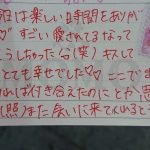 日は楽しい時間をありが
♡ すごい愛されてるなって
うしちゃった(笑) キスして
とても幸せでした♡♡ ここでま
れば付き合えたのにとか思
(照)また会いに来てくれると